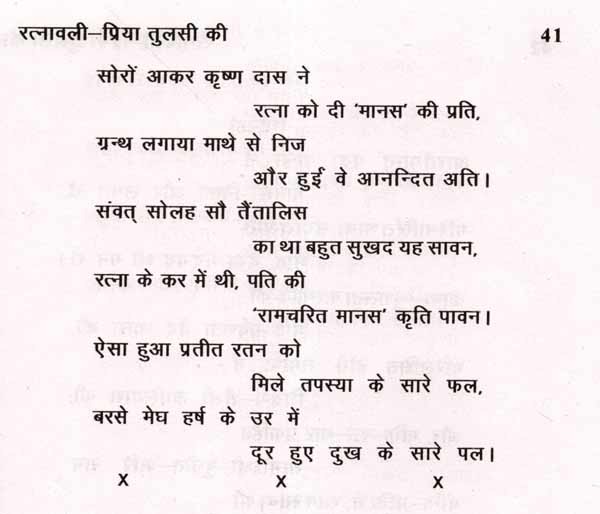 रत्नावली–प्रिया तुलसी की 41
सोरों आकर कृष्ण दास ने
रत्ना को दी 'मानस' की प्रति,
ग्रन्थ लगाया माथे से निज
और हुई वे आनन्दित अति।
संवत् सोलह सौ तैंतालिस
का था बहुत सुखद यह सावन,
रत्ना के कर में थी, पति की
'रामचरित मानस' कृति पावन।
ऐसा हुआ प्रतीत रतन को
मिले तपस्या के सारे फल,
बरसे मेघ हर्ष के उर में
दूर हुए दुख के सारे पल।
X X X